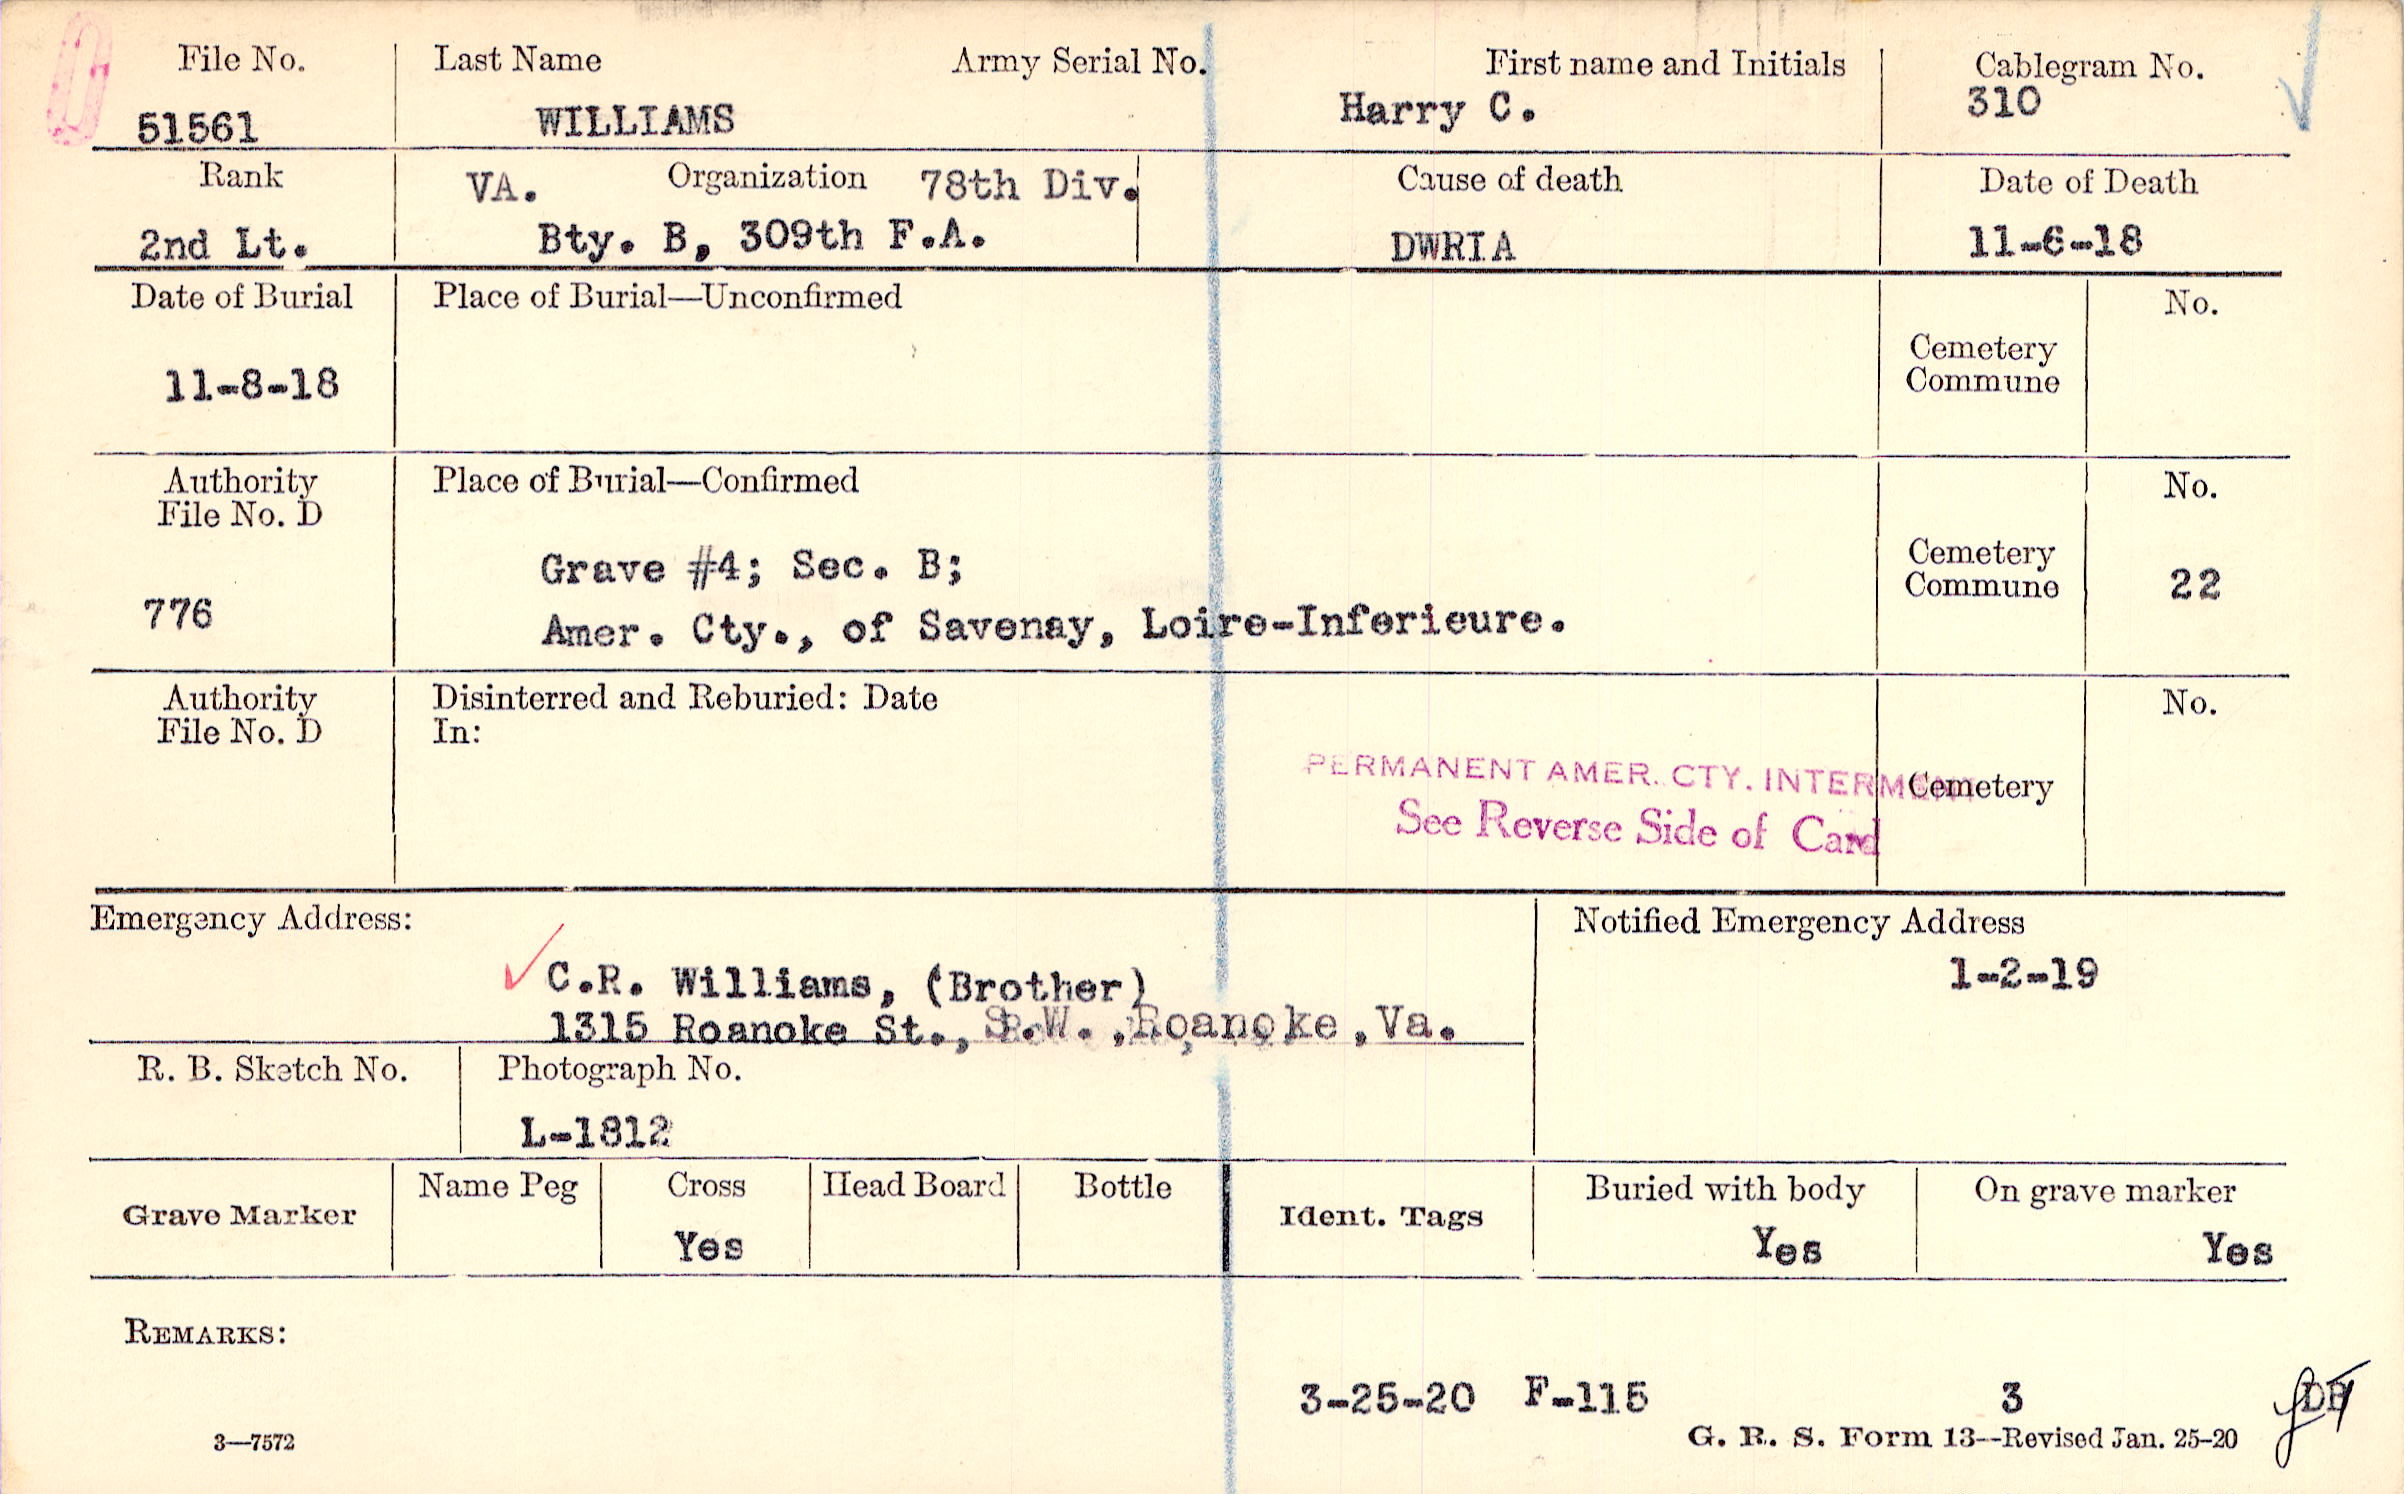 File No. Last Name Army Serial No. First name and Initials Cablegram No.
51561 WILLIAMS Harry C. 310
Rank VA. Organization 78th Div. Cause of death Date of Death
2nd Lt. Bty. B, 309th F.A. DWRIA 11-6-18
Date of Burial Place of Burial—Unconfirmed No.
Cemetery
Commune
11-8-18
Authority Place of Burial—Confirmed No.
File No. D
Grave #4; Sec. B; Cemetery
Commune 22
776 Amer. Cty., of Savenay, Loire-Inferieure.
Authority Disinterred and Reburied: Date No.
File No. D In:
PERMANENT AMER. CTY. INTERMENT
Cemetery
See Reverse Side of Card
Emergency Address: Notified Emergency Address
C.R. Williams, (Brother) 1-2-19
1315 Roanoke St., S.W., Roanoke, Va.
R. B. Sketch No. Photograph No.
L-1812
Grave Marker Name Peg Cross Head Board Bottle Ident. Tags Buried with body On grave marker
Yes Yes Yes
REMARKS:
3-25-20 F-115 3
3—7572 G. R. S. Form 13—Revised Jan. 25-20